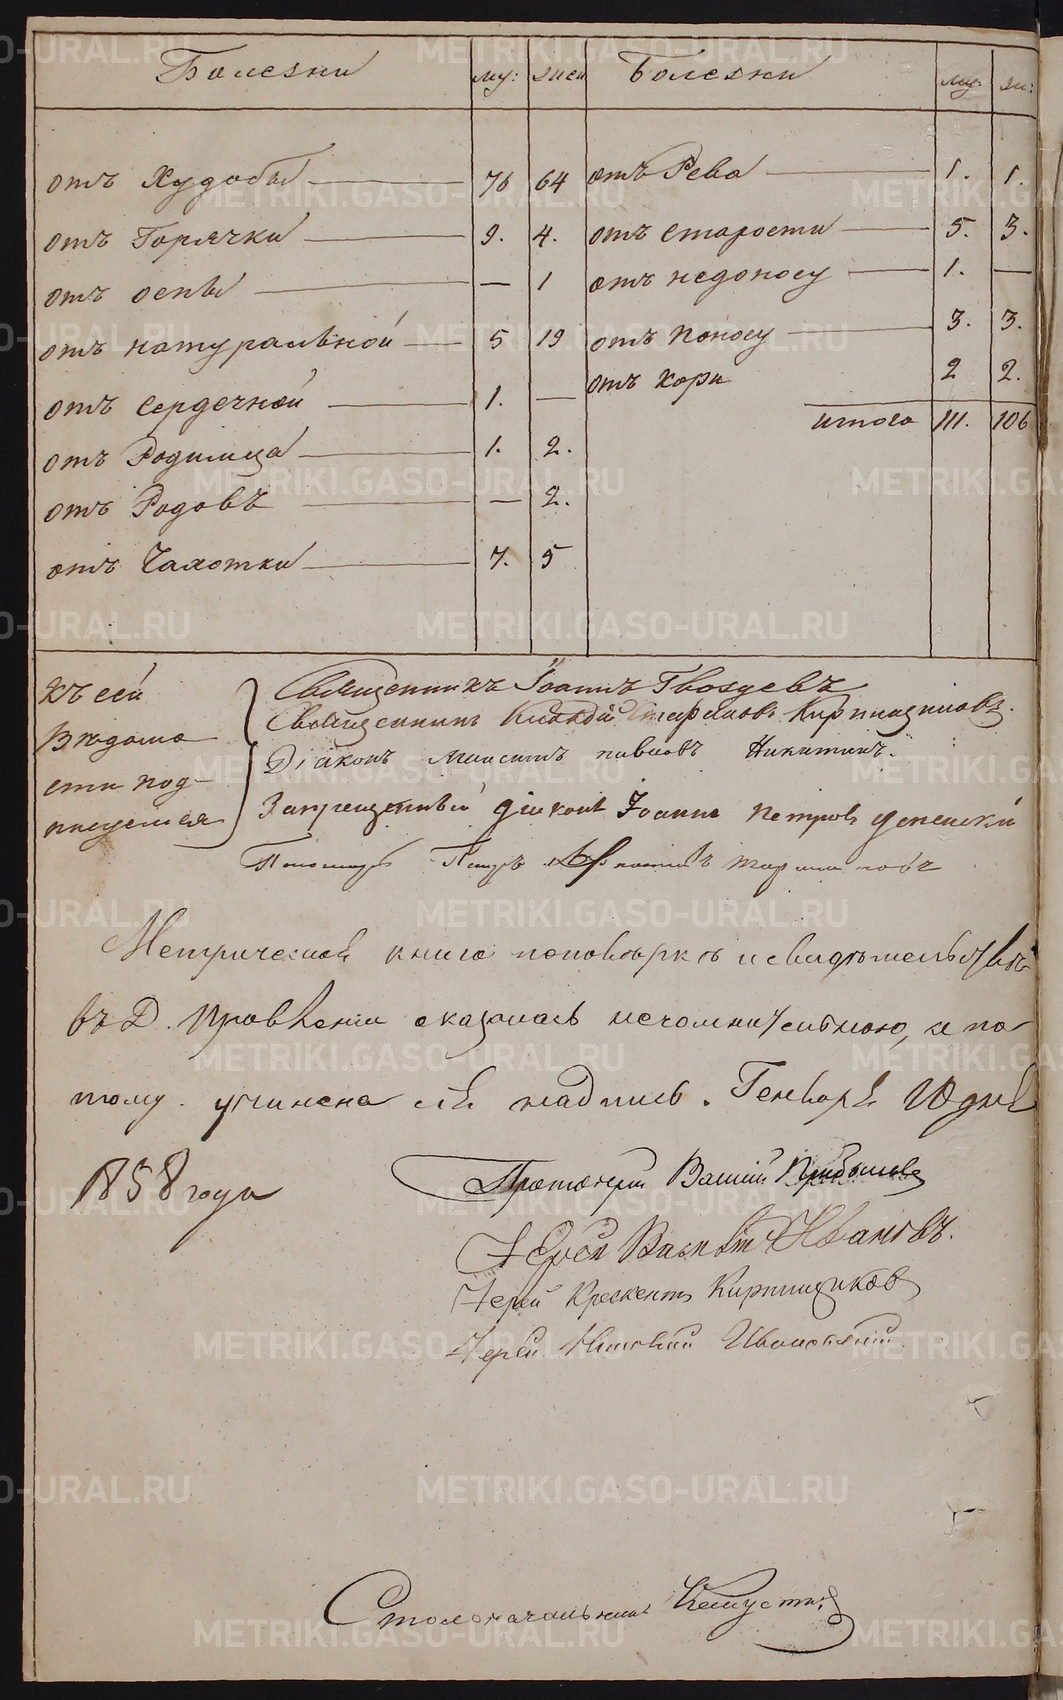 Болезни му: жен Болезни му: жен:
отъ Худобы 76 64 отъ Рева 1. 1.
отъ Горячки 9. 4. отъ старости 5. 3.
отъ оспы — 1 отъ недоносу 1. —
отъ натуральной 5 19 отъ поносу 3. 3.
отъ сердечной 1. — отъ кори 2 2.
итого 111. 106
отъ Родимца 1. 2.
отъ Родовъ — 2.
отъ Чахотки 7. 5
Къ сей
вѣдомо
сти под-
писуемся
Священникъ Іоаннъ Гвоздевъ
Священникъ Кирпищиковъ.
Діаконъ Максимъ Павловъ Никитинъ.
Запрещенный діаконъ Іоаннъ Петровъ Успенскій
Пономарь Петръ
Метрическая книга по повѣркѣ и свидѣтельствѣ
въ Д. Правленіи оказалась несомнительною, а по
тому учинена сія надпись. Генваря дня
1858 года
Протоіерей Василій Прибылевъ
Іерей Ивановъ.
Іерей Крескентъ Кирпищиковъ
Іерей
Столоначальникъ
METRIKI.GASO-URAL.RU